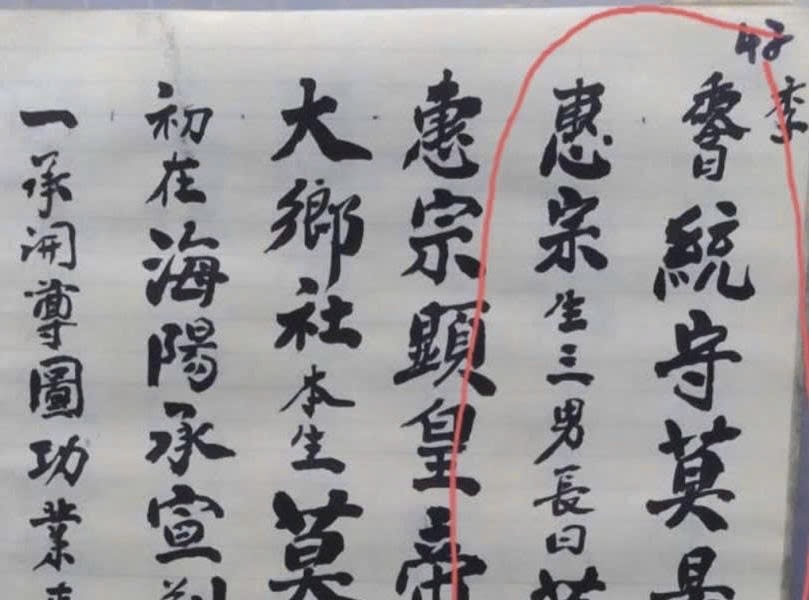 統守莫
惠宗生三男長曰
惠宗顯皇帝
大鄉社本生莫
初在海陽承宣
一承開尊圖功業